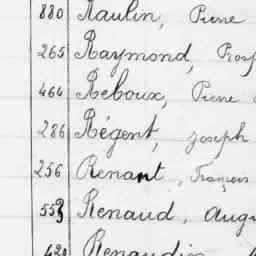 880 Raulin, Pierre
265 Raymond, Prosp
464 Reboux, Pierre
286 Régent, Joseph
256 Renant, François
553 Renaud, Augu
420 Renaudin